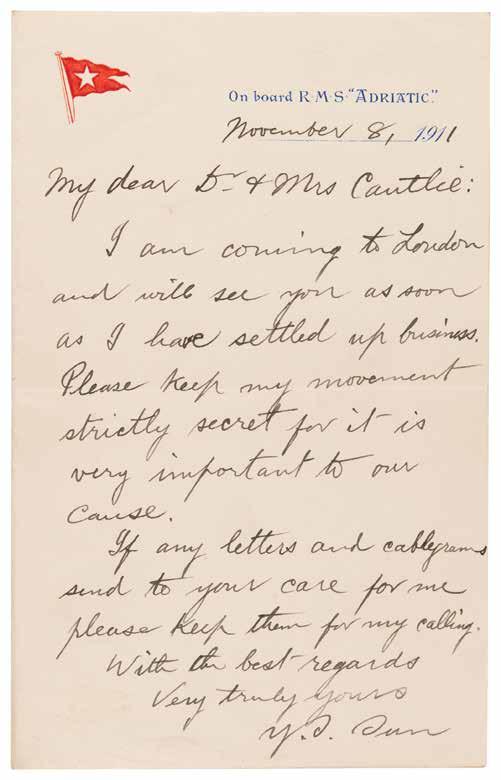 On board R·M·S·"ADRIATIC."
November 8, 1911
My dear Dr & Mrs Cantlie:
I am coming to London
and will see you as soon
as I have settled up business.
Please keep my movement
strictly secret for it is
very important to our
cause.
If any letters and cablegrams
send to your care for me
please keep them for my calling.
With the best regards
Very truly yours
Y. S. Sun